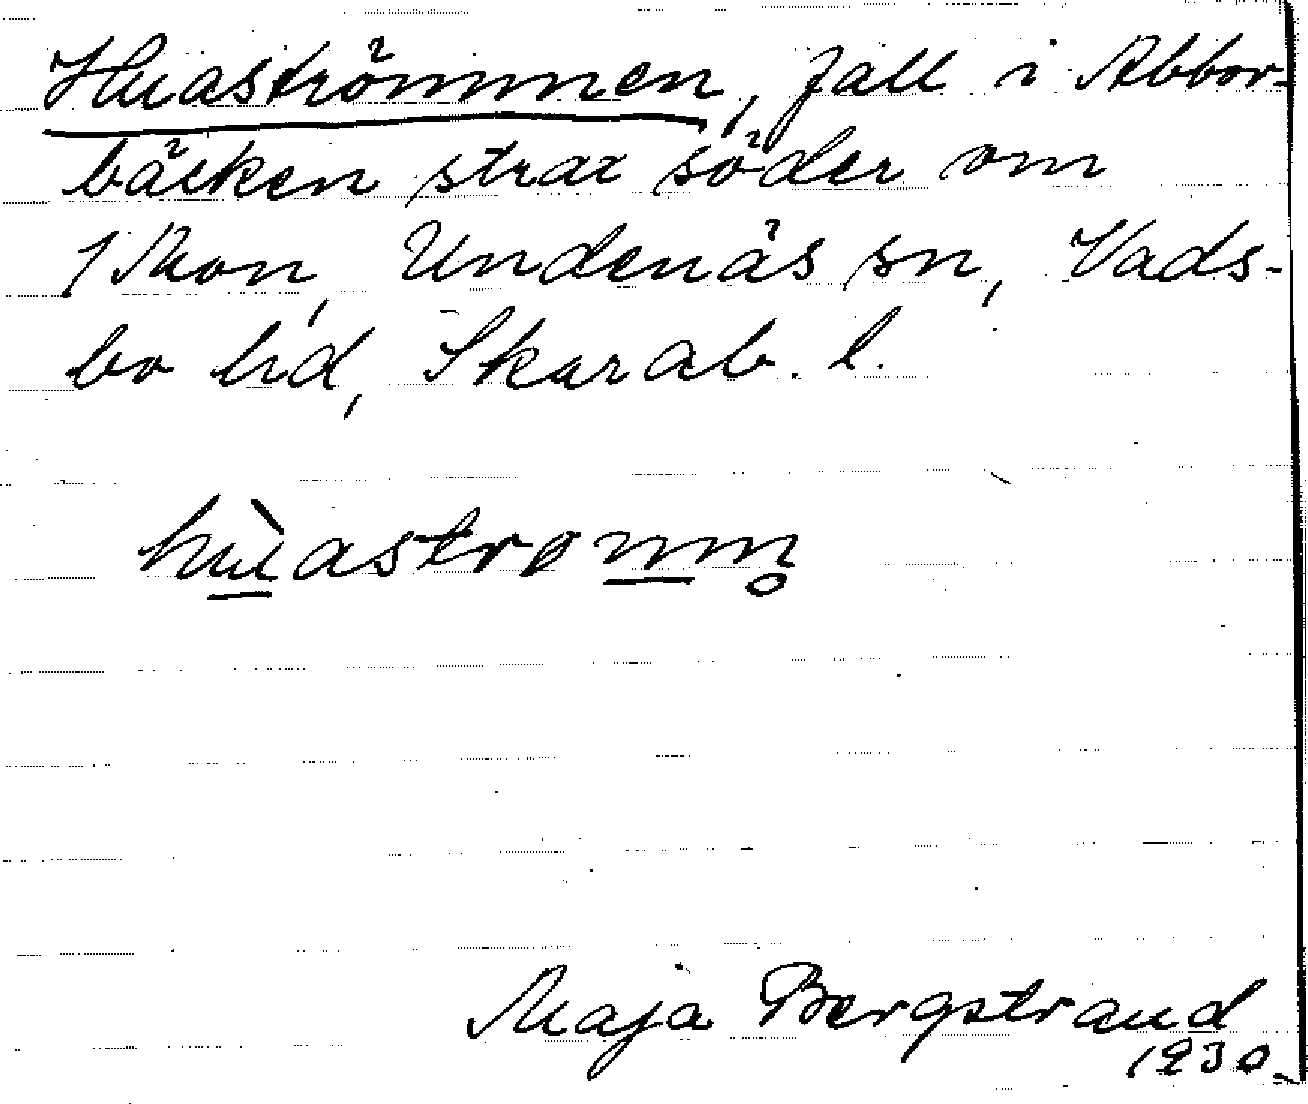 Huaströmmen, fall i Abbor-
bäcken strax söder om
Undenäs sn, Vads-
bo hd, Skarab. l.
huaströmm
Maja Bergstrand
1930